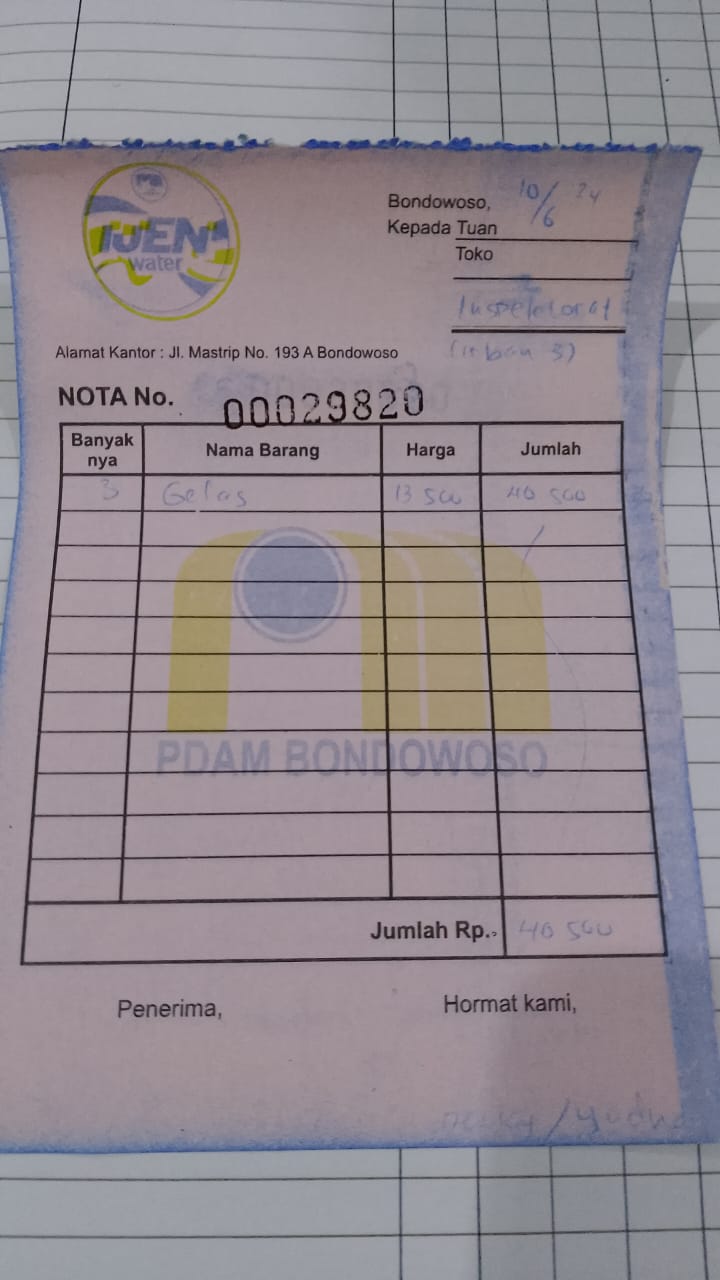 IJEN
water
Bondowoso, 10/6 24
Kepada Tuan
Toko
Inspektorat
(irban 3)
Alamat Kantor : Jl. Mastrip No. 193 A Bondowoso
NOTA No. 00029820
Banyak nya Nama Barang Harga Jumlah
3 Gelas 13 500 40 500
PDAM BONDOWOSO
Jumlah Rp.. 40 500
Penerima, Hormat kami,